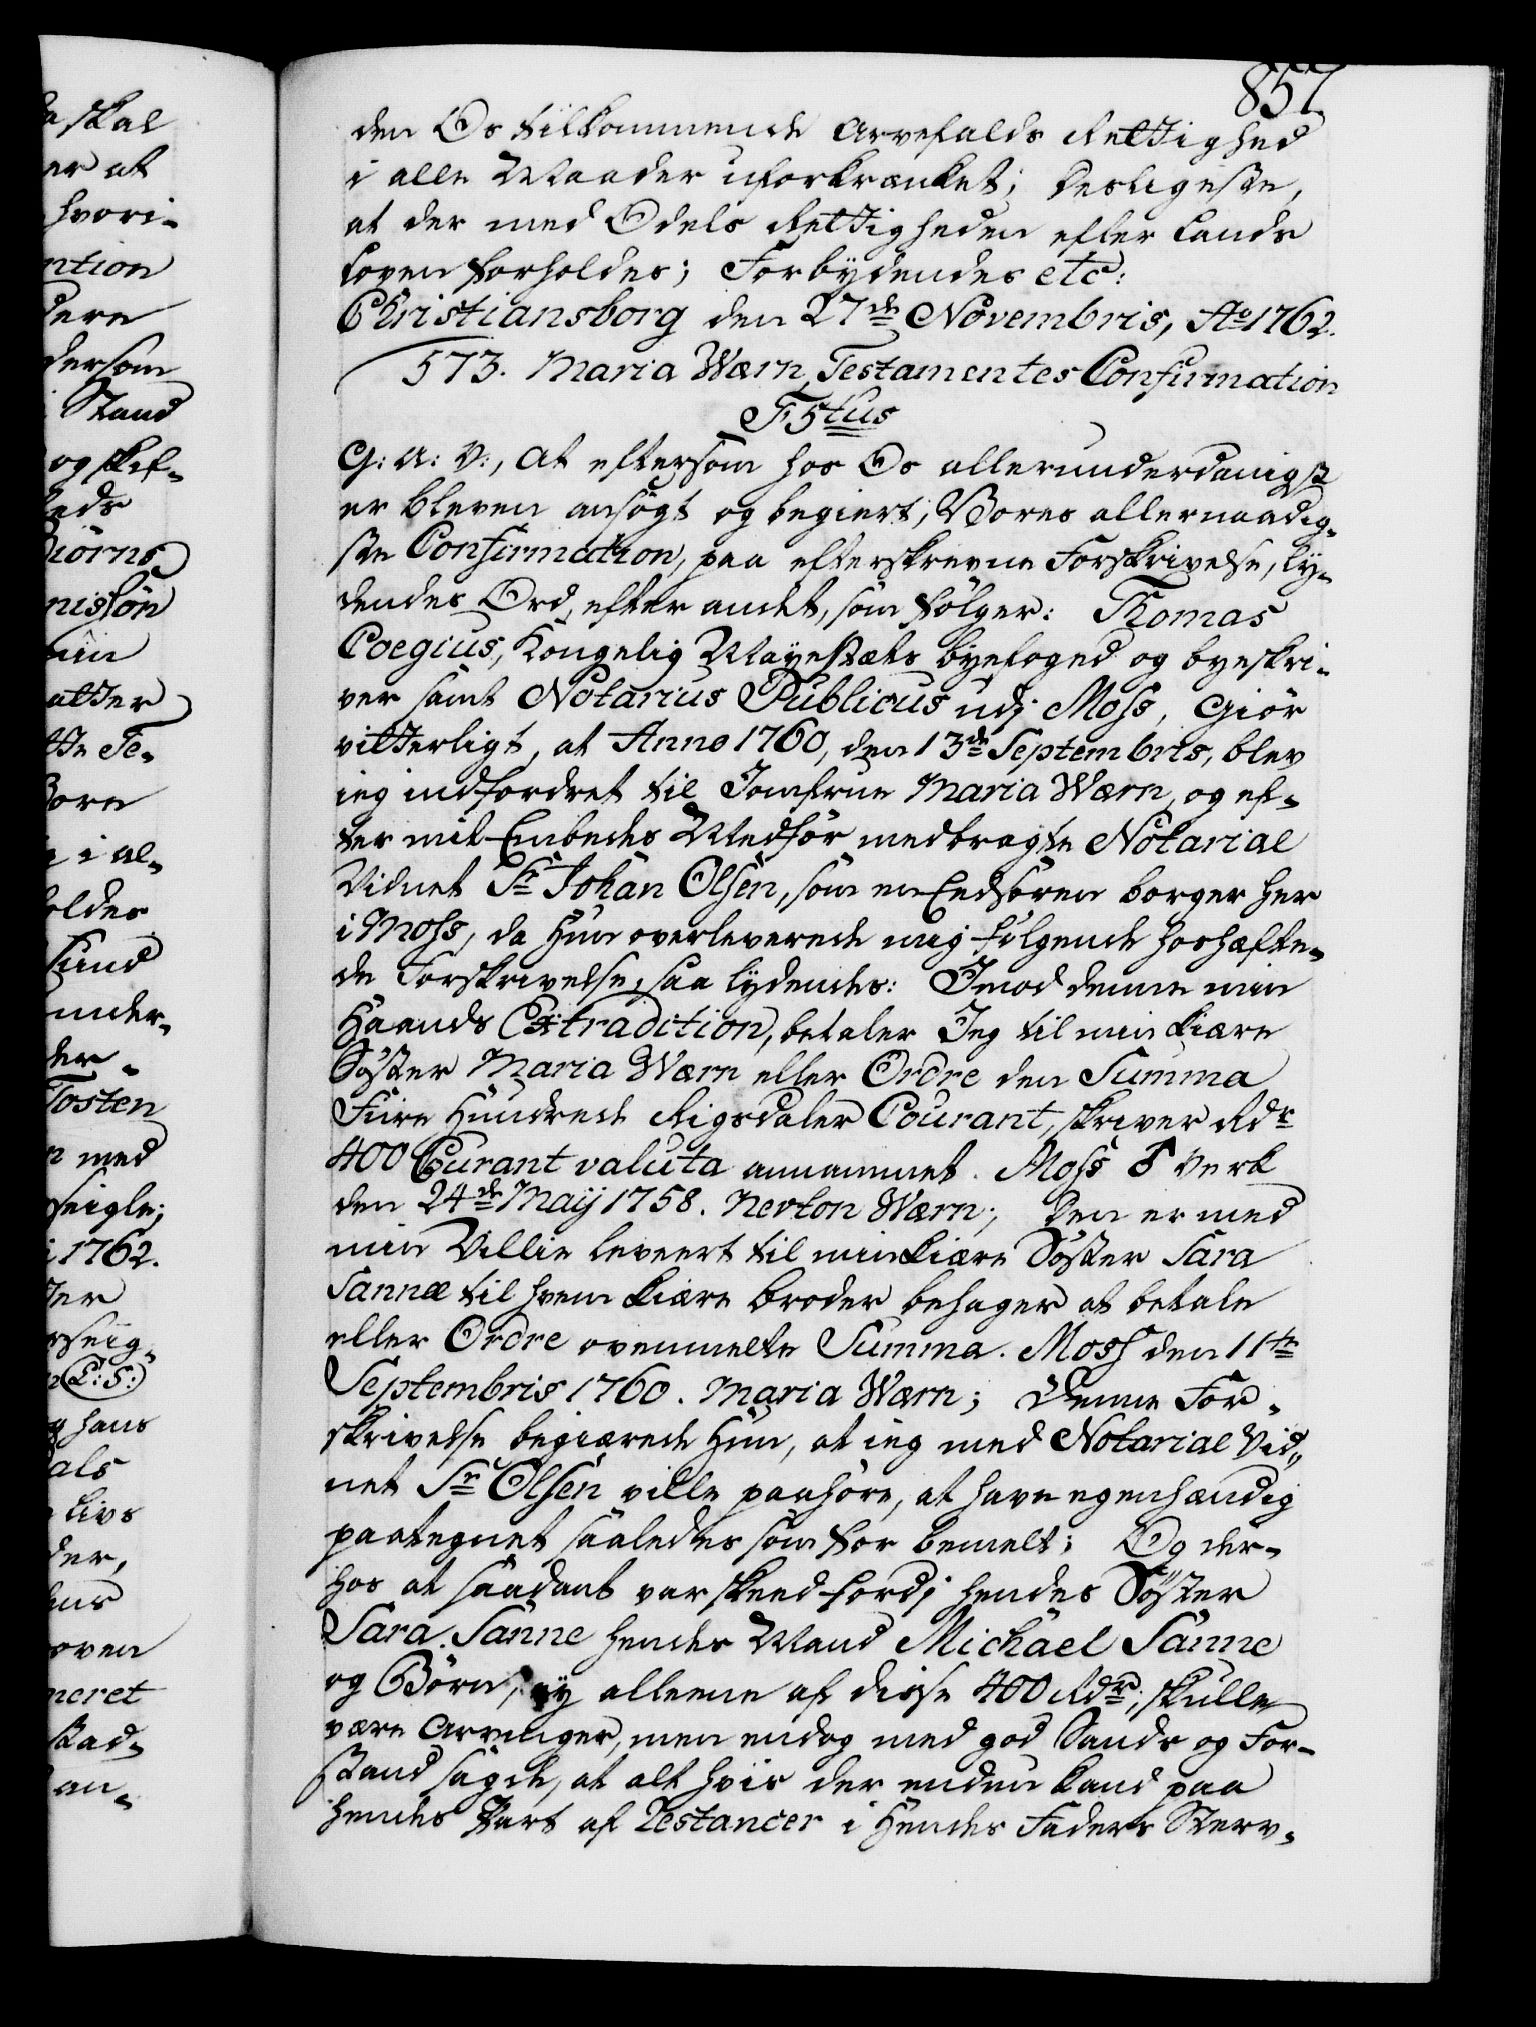 857
den Os tilkommende Arvefalds Rettighed
i alle Maader uforkrænket; Desligeste,
at der med Odels Rettigheden efter Lands
Loven forholdes; Forbydendes etc:
Christiansborg den 27de Novembris, Ao 1762.
573. Maria Wærn, Testamentes Confirmation
F 5tus
G: A: V:, At eftersom hos Os allerunderdanigst
er bleven ansøgt og begiert, Vores allernaadig-
ste Confirmation, paa efterskrevne Forskrivelse, ly-
dendes Ord efter andet, som følger: Thomas
Coegius, Kongelig Mayestæts byefoged og byeskri-
ver samt Notarius Publicus udj Moss, Giør
vitterligt, at Anno 1760, den 13de Septembris, blev
ieg indfordret til Jomfrue Maria Wærn, og ef-
ter mit Embedes Medfør medbragte Notarial
Vidnet Sr Johan Olsen, som en Eedsoren borger her
i Moss, da Hun overleverede mig følgende hoshæfte-
de Forskrivelse, saa lydendes: Imod denne min
Haands Extradition, betaler Jeg til min kiære
Søster Maria Wærn eller Ordre den Summa
Fiire Hundrede Rigsdaler Courant, skriver Rdr
400 Curant valuta annammet. Moss ♂ Verk
den 24de Maÿ 1758. Nevton Wærn; Den er med
min Villie leveert til min kiære Søster Sara
Sannæ til hvem kiære broder behager at betale
eller Ordre ovenmelte Summa. Moss den 11te
Septembris 1760. Maria Wærn; Denne For-
skrivelse begiærede Hun, at ieg med Notarial Vid-
net Sr Olsen ville paahøre, at have egenhændig
paategnet saaledes som for bemelt; Og der-
hos at saadant var skeed fordj hendes Søster
Sara Sanne hendes Mand Michael Sanne
og Børn, eÿ alleene af disse 400 Rdr, skulle
være Arvinger, men endog med god Sands og For-
stand sagde, at alt hvis der enden kand paa
hendes Part af Restancer i Hendes Faders Sterv-